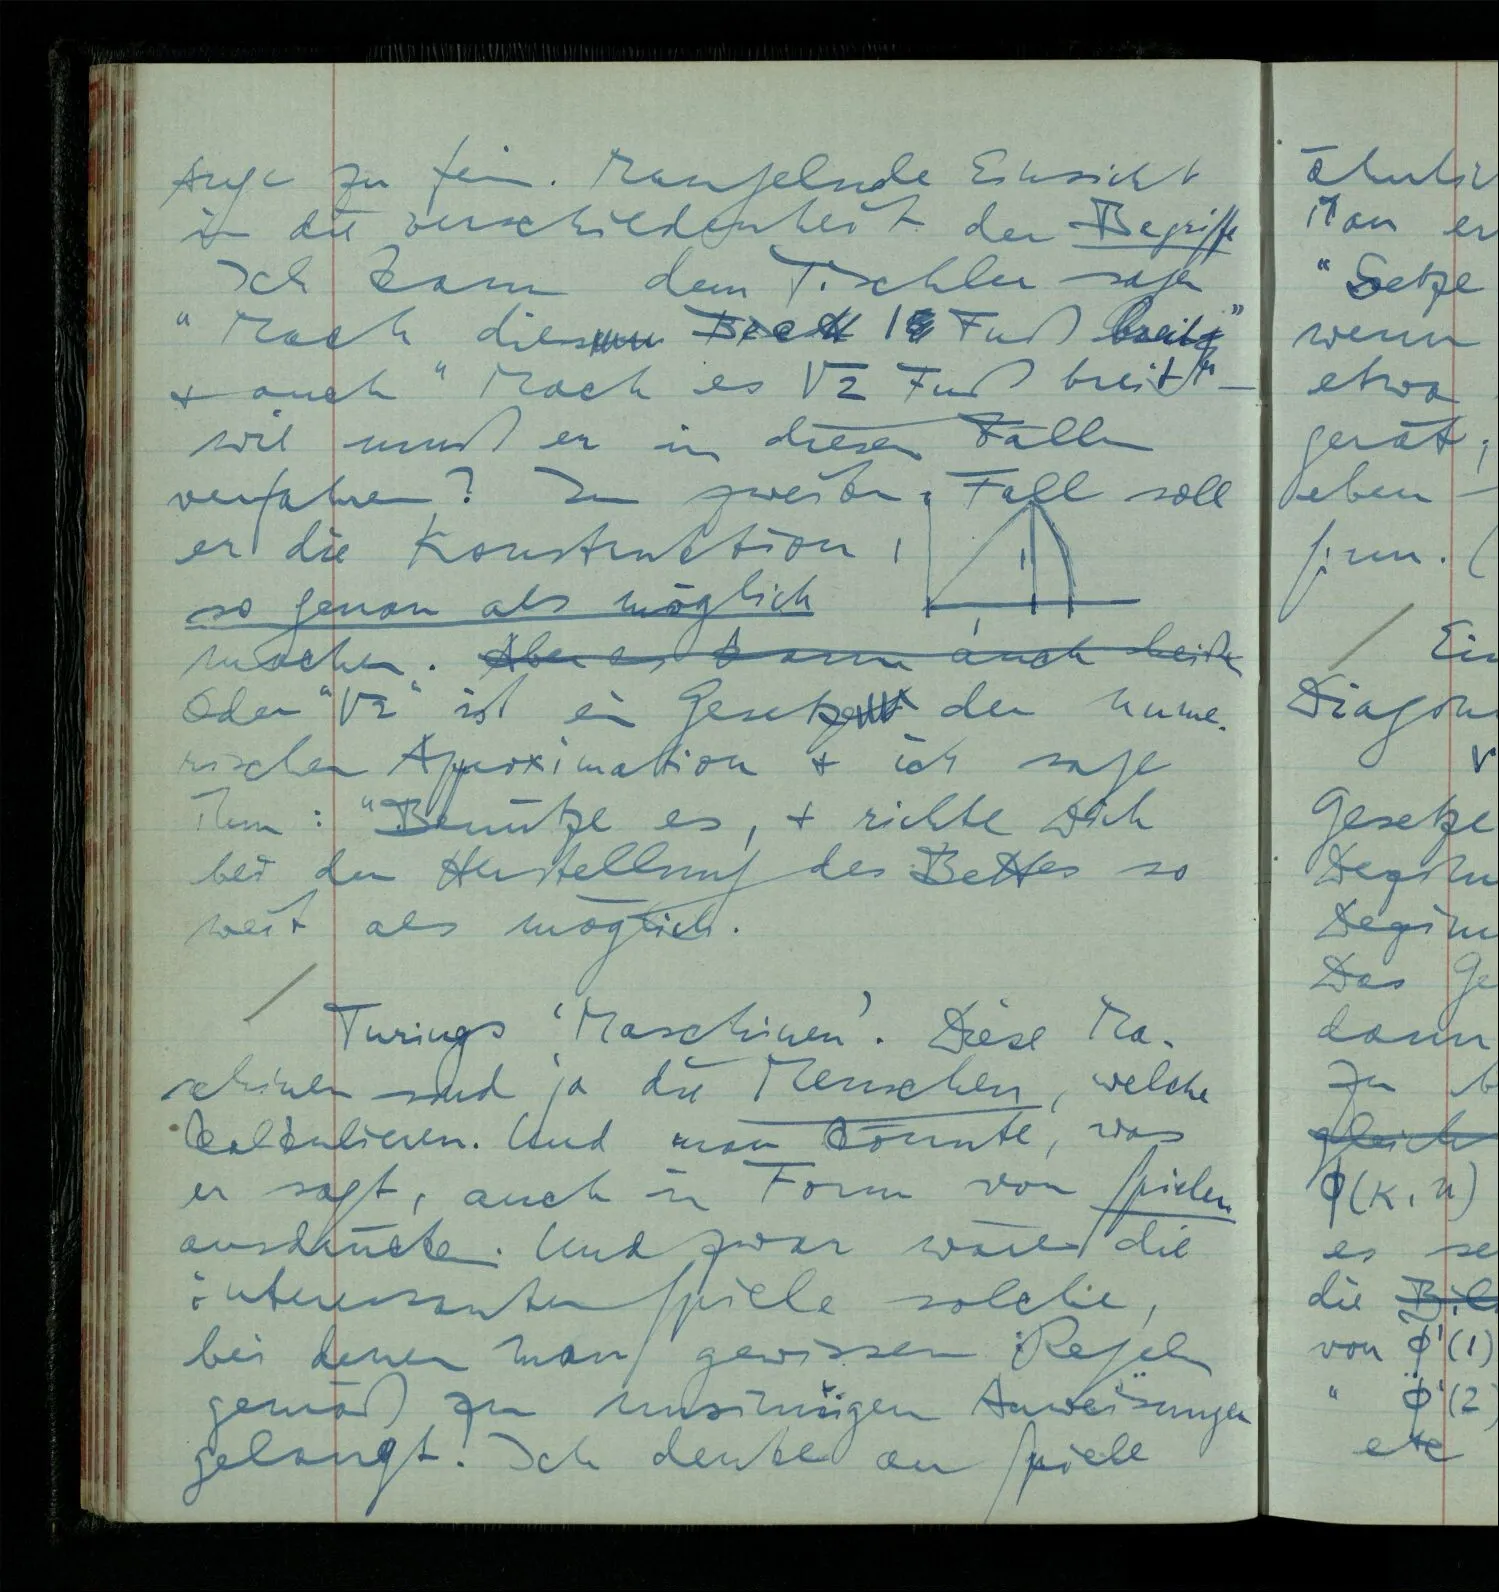 Auge zu sein. Mangelnde Einsicht
in die Verschiedenheit der Begriffe
Ich kann dem Tischler sagen
"Mach dies Bett 18 Fuß breit"
+ auch "Mach es √2 Fuß breit" –
wie muß er in diesen Fällen
verfahren? Im zweiten Fall soll
er die Konstruktion,
so genau als möglich
machen. Aber es kann auch heißen
Oder "√2" ist ein Gesetz der nume-
rischen Approximation + ich sage
ihm: "Benütze es, + richte Dich
bei der Herstellung des Bettes so
weit als möglich.
Turings 'Maschinen'. Diese Ma-
schinen sind ja die Menschen, welche
kalkulieren. Und man könnte, was
er sagt, auch in Form von Spielen
ausdrücken. Und zwar wären die
interessanten Spiele solche,
bei denen man gewissen Regeln
gemäß zu unsinnigen Anweisungen
gelangt. Ich denke an Spiele
Man er
"Setze
wenn
etwa
gerät;
eben –
Ein
Diagon
Gesetze
Das Ge
dann
zu b
gleich
ϕ(k, n)
es se
die Bil
von ϕ'(1)
" ϕ'(2)
etc